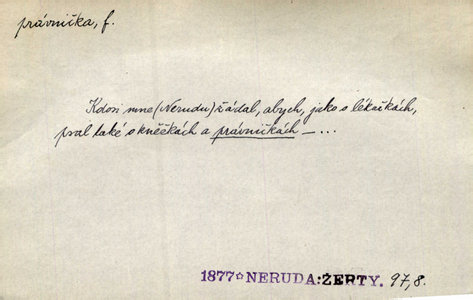 právnička, f.
Kdosi mne (Nerudu) žádal, abych, jako s lékařkách,
psal také o kněžkách a právničkách — ...
1877 NERUDA: ŽERTY. 97,8.